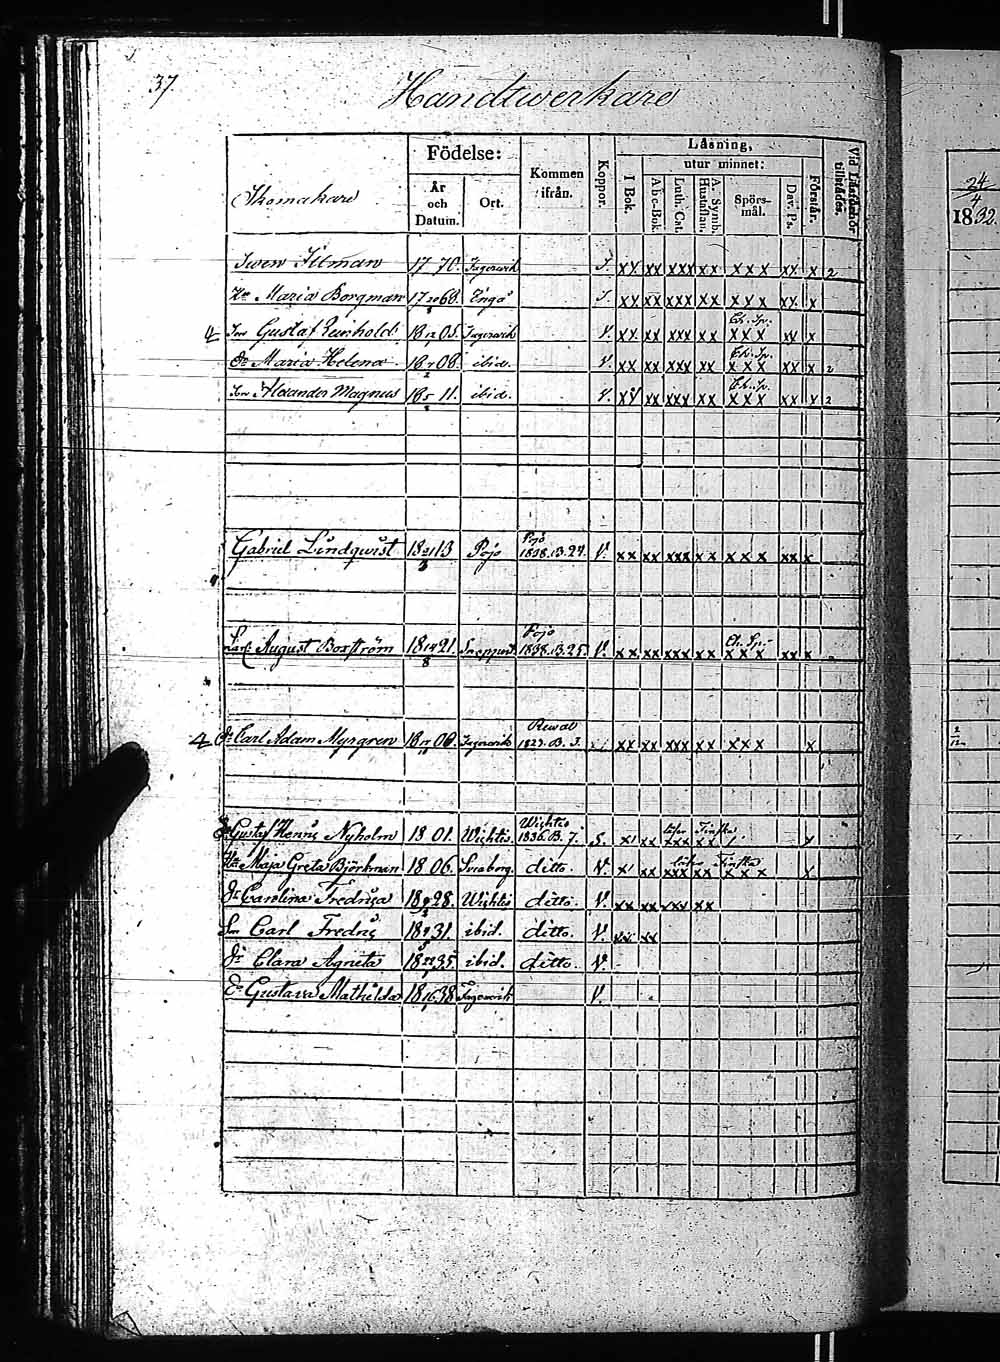 37
Handtwerkare
Skomakare
Födelse:
År och Datum.
Ort.
Kommen ifrån.
Koppor.
Läsning,
utur minnet:
I Bok.
Abc-Bok
Luth. Cat.
A. Symb. Hustaflan.
Spörsmål.
Dav. Ps.
Förstår.
24/4 1832
Swen Itman 1770. Fagerwik xx xx xxx xx xxx xx x 2
Maria Borgman 17 68. Ingå xx xx xxx xx xxx xx x
4 Gustaf Reinhold 18 05. Fagerwik V. xx xx xxx xx Ch. Sp. xxx xx x
Maria Helena 18 08. ibid. V. xx xx xxx xx Ch. Sp. xxx xx x 2
Alexander Magnus 18 11. ibid. V. xx xx xxx xx Ch. Sp. xxx xx x 2
Gabriel Lindqwist 18 21/3 13 Pojo Pojo 1838.B.27. V. xx xx xxx xx xxx xx x
August Boxström 18 14/8 21. Pojo 1838.B.25. V. xx xx xxx xx Ch. Sp. xxx xx x
4 Carl Adam Myrgren 18 08. Fagerwik Rewal 1827.B.3. xx xx xxx xx xxx x
Gustaf Henric Nyholm 1801. Wichtis. Wichtis 1836.B.7. S. x xx läser Finska xxx xx x
Maja Greta Björkman 1806. Sveaborg. ditto. V. x xx läser Finska xxx xx xxx x
Carolina Fredrica 18 28. Wichtis ditto. V. xx xx xxx xx
Carl Fredric 18 31. ibid. ditto. V. xx xx
Clara Agneta 18 35. ibid. ditto. V.
Gustava Mathilda 18 38 Fagerwik V.